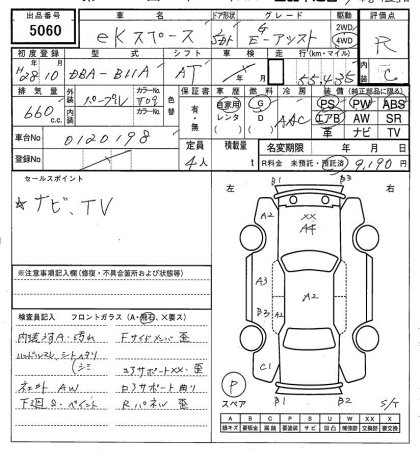 出品番号 車名 ドア形状 グレード 駆動 評価点
5060 eKスペース 5D G Eーアシスト 2WD 4WD R
初度登録 型式 シフト 車検 走行(km・マイル) 内装
H28年10月 DBA-B11A AT 55,435 C
排気量 外装 カラーNo. 色替 保証書 車歴 燃料 冷房 装備(純正部品に限る)
660c.c. パープル 内装 カラーNo. 有・無 自家用 レンタ G D AAC PS PW ABS
エアB AW SR
革 ナビ TV
車台No 0120198 定員 積載量 名変期限 年 月 日
登録No 4人 t R料金 未預託・預託済 9,190円
セールスポイント 左 右
☆ナビ、TV
B1 B3
A2 XX
A4
A3
A2
B3
※注意事項記入欄(修復・不具合箇所および状態等)
検査員記入 フロントガラス(A・飛石・X要ス)
内装スすA・汚れ Fサイドメンバ 歪
ハンドルスレ シートヘタリ
シミ コアサポートXX・歪
キズ AW ロアサポート曲り
下廻S・ペイント Rパネル 歪
C1
P
スペア B1 B2 S/T
A B C P S U W XX X
線キズ 要板金 腐蝕 要塗装 サビ 凹凸 補修跡 交換跡 要交換